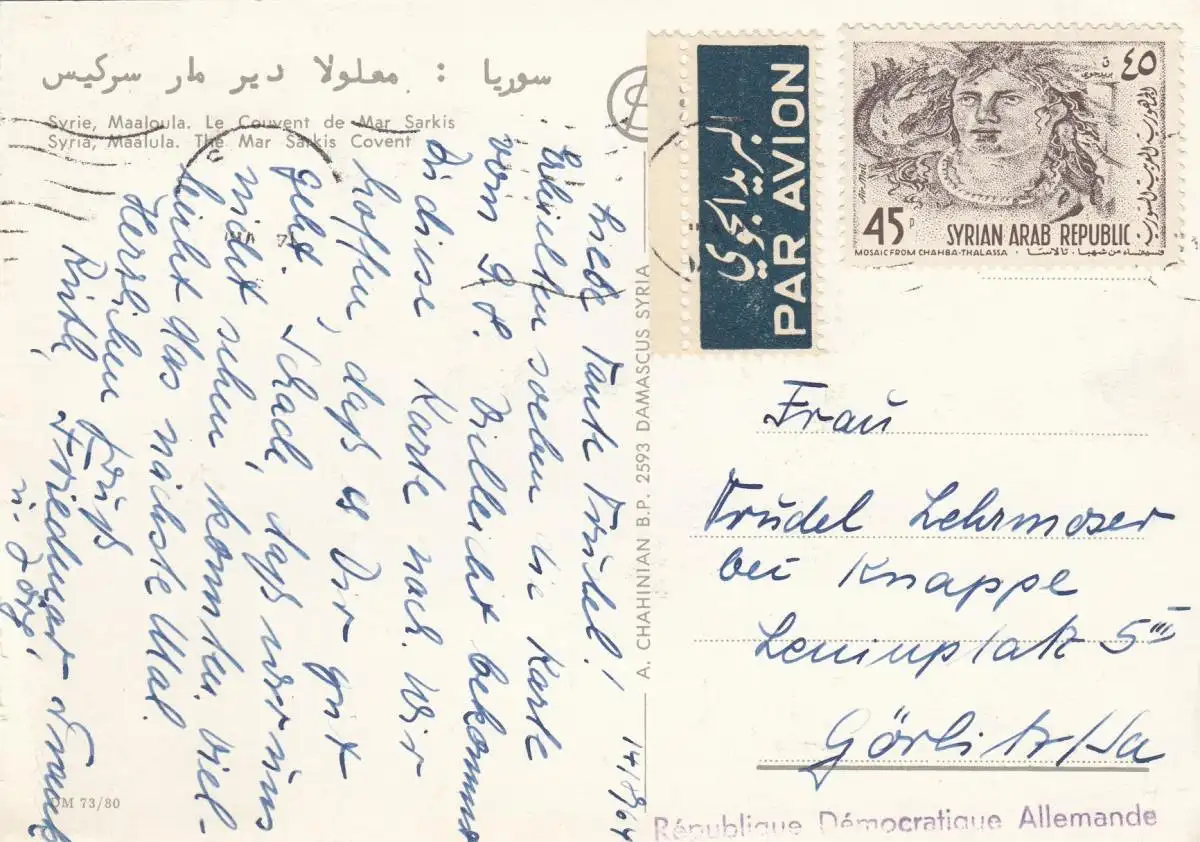 سوريا : معلولا دير مار سركيس
Syrie, Maaloula. Le Couvent de Mar Sarkis
Syria, Maalula. The Mar Sarkis Covent
14/8/64
Liebe Tante Trudel!
Erhielten soeben die Karte
vom 9.8. Vielleicht bekommst
Du diese Karte noch. Wir
hoffen, daß es Dir gut
geht. Schade, daß wir uns
nicht sehen konnten. Viel-
leicht das nächste Mal.
Herzlichen Gruß
Friedmar
u. Jörg
DM 73/80
A. CHAHINIAN B.P. 2593 DAMASCUS SYRIA
البريد الجوي
PAR AVION
٤٥
ق
بريد جوي
الجمهورية العربية السورية
45 P
SYRIAN ARAB REPUBLIC
MOSAIC FROM CHAHBA-THALASSA
فسيفساء من شهبا - تالاسا
Frau
Trudel Lehrmoser
bei Knappe
Leninplatz 5 III
Görlitz/Sa
République Démocratique Allemande